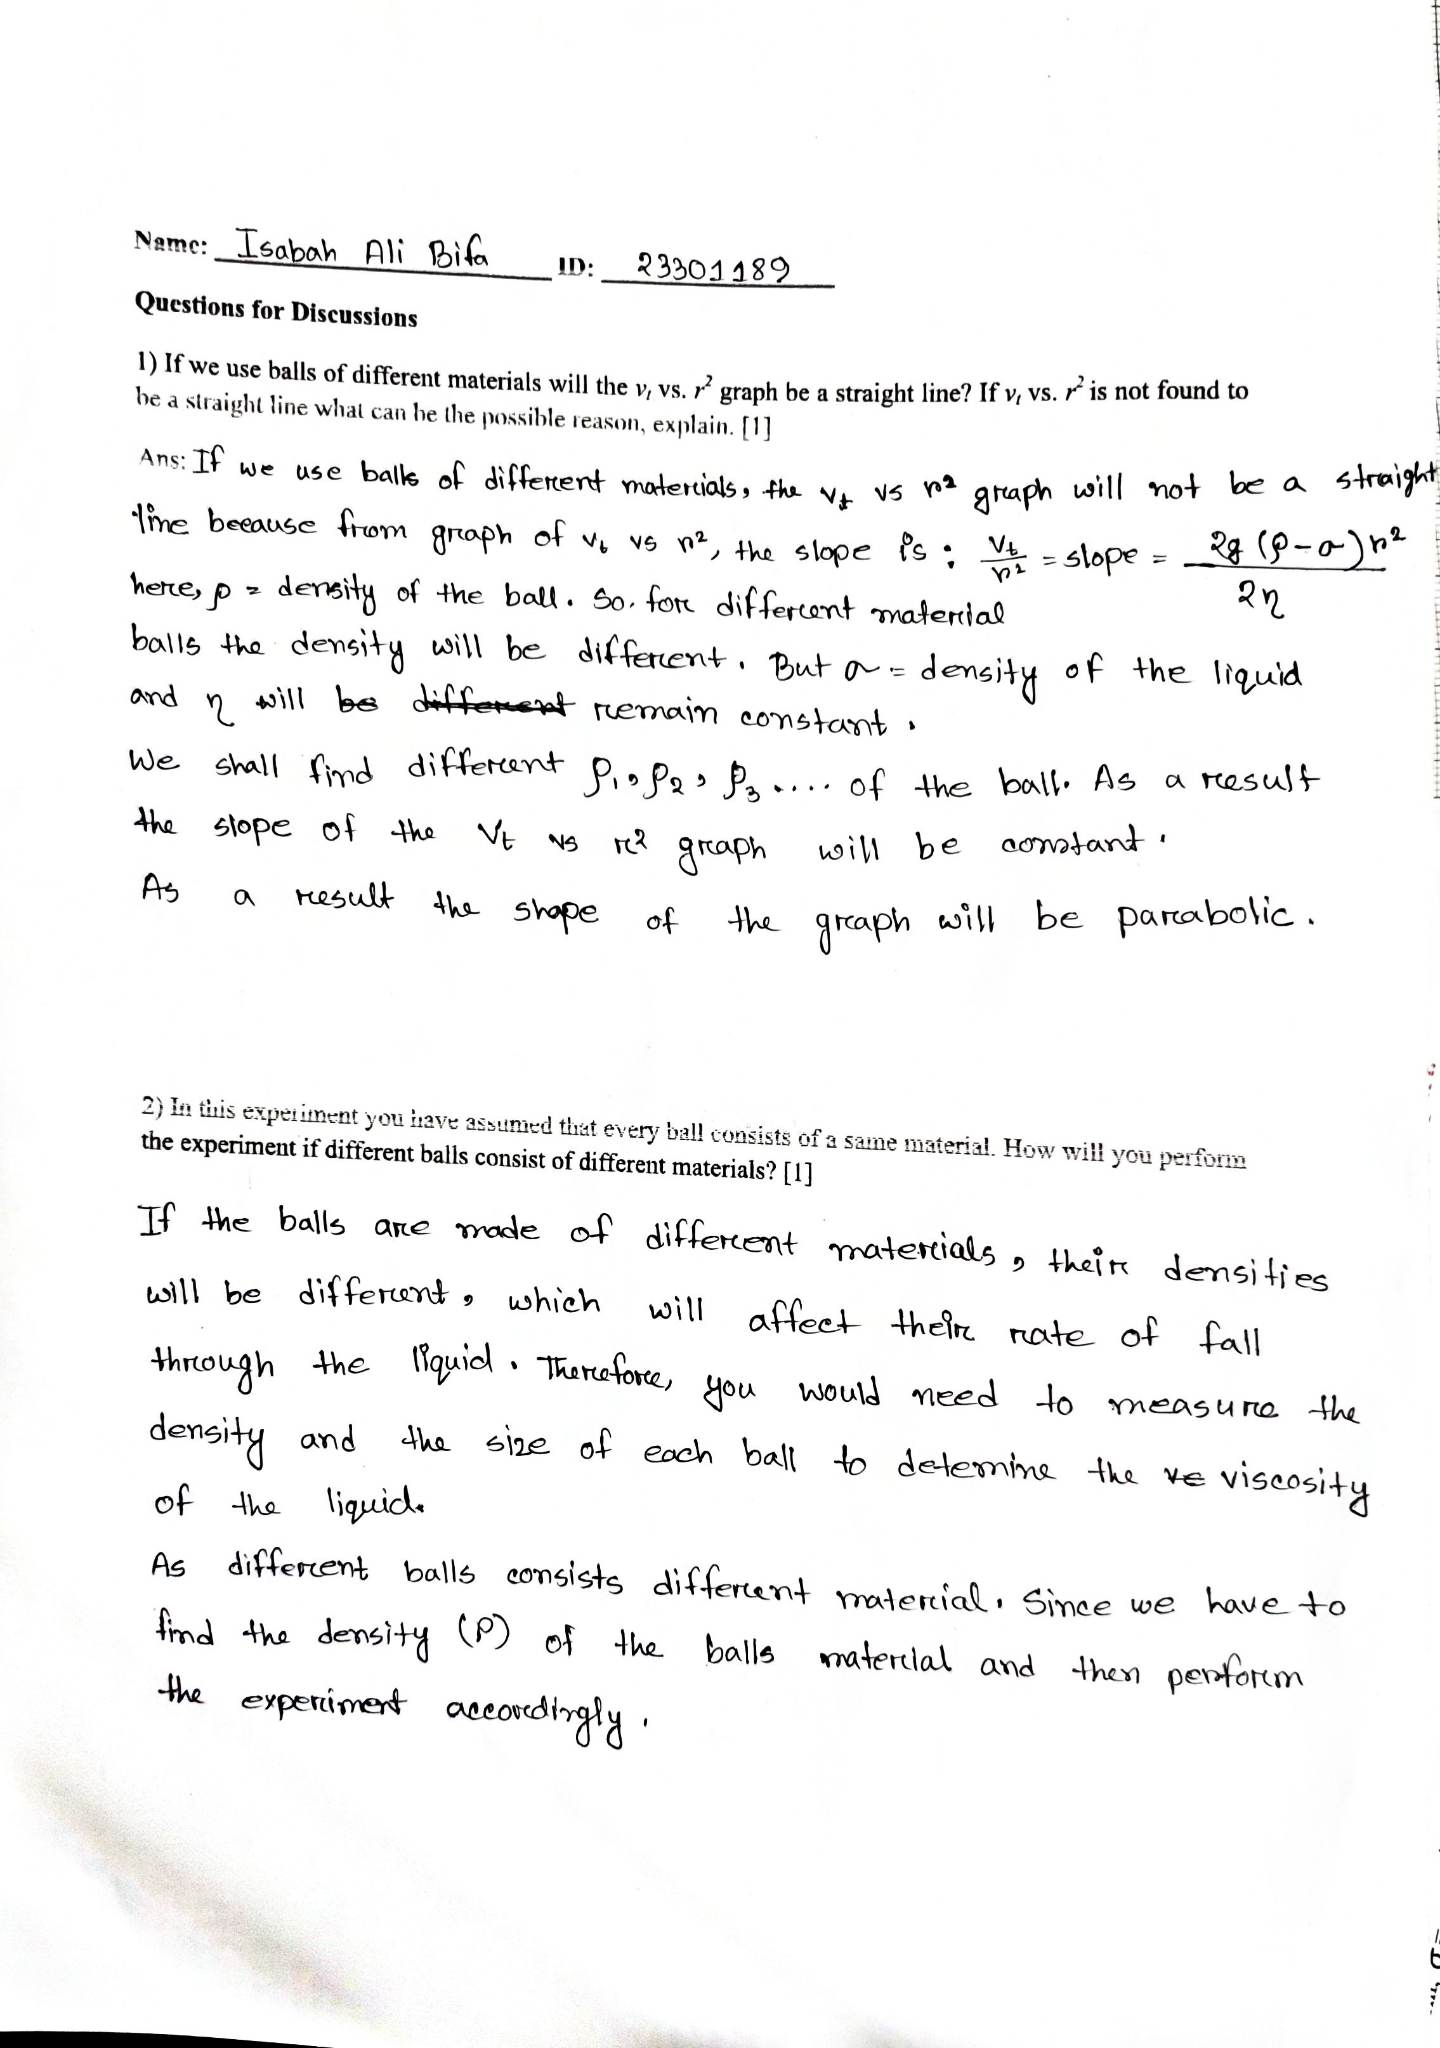 Name: Isabah Ali Bifa ID: 23301189
Questions for Discussions
1) If we use balls of different materials will the vₜ vs. r² graph be a straight line? If vₜ vs. r² is not found to
be a straight line what can be the possible reason, explain. [1]
Ans: If we use balls of different materials, the vₜ vs r² graph will not be a straight
line because from graph of vₜ vs r², the slope is : vₜ/r² = slope = 2g (ρ-σ)r²/2η
here, ρ = density of the ball. So, for different material
balls the density will be different. But σ = density of the liquid
and η will be different remain constant.
We shall find different ρ₁, ρ₂, ρ₃ .... of the ball. As a result
the slope of the Vt vs r² graph will be constant.
As a result the shape of the graph will be parabolic.
2) In this experiment you have assumed that every ball consists of a same material. How will you perform
the experiment if different balls consist of different materials? [1]
If the balls are made of different materials, their densities
will be different, which will affect their rate of fall
through the liquid. Therefore, you would need to measure the
density and the size of each ball to detemine the ve viscosity
of the liquid.
As different balls consists different material. Since we have to
find the density (ρ) of the balls material and then perform
the experiment accordingly.